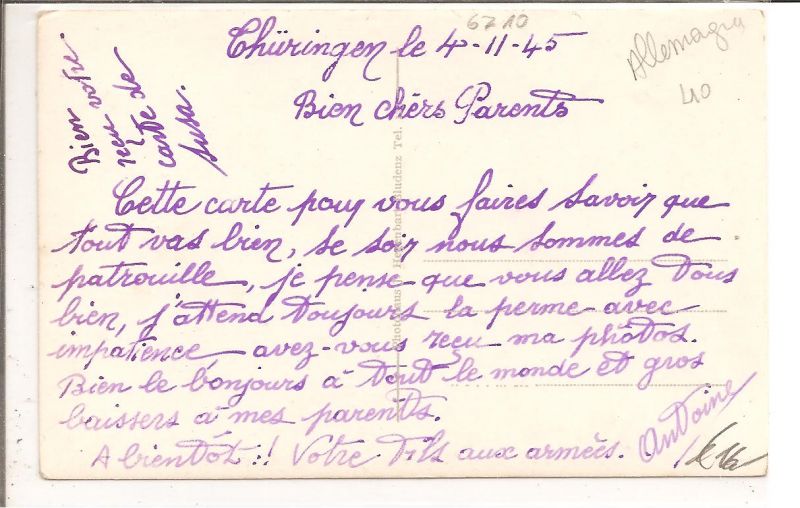 6710
Thüringen le 4-11-45
Allemagne
40
Bien chérs Parents
Bien
reçu votre
carte de
Susa.
Cette carte pour vous faires savoir que
tout vas bien, se soir nous sommes de
patrouille, je pense que vous allez tous
bien, j'attend toujours la perme avec
impatience, avez-vous reçu ma phôtos.
Bien le bonjours à tout le monde et gros
baissers à mes parents.
A bientôt!! Votre Fils aux armées.
Antoine
Photohaus Hepenbar Bludenz Tel.